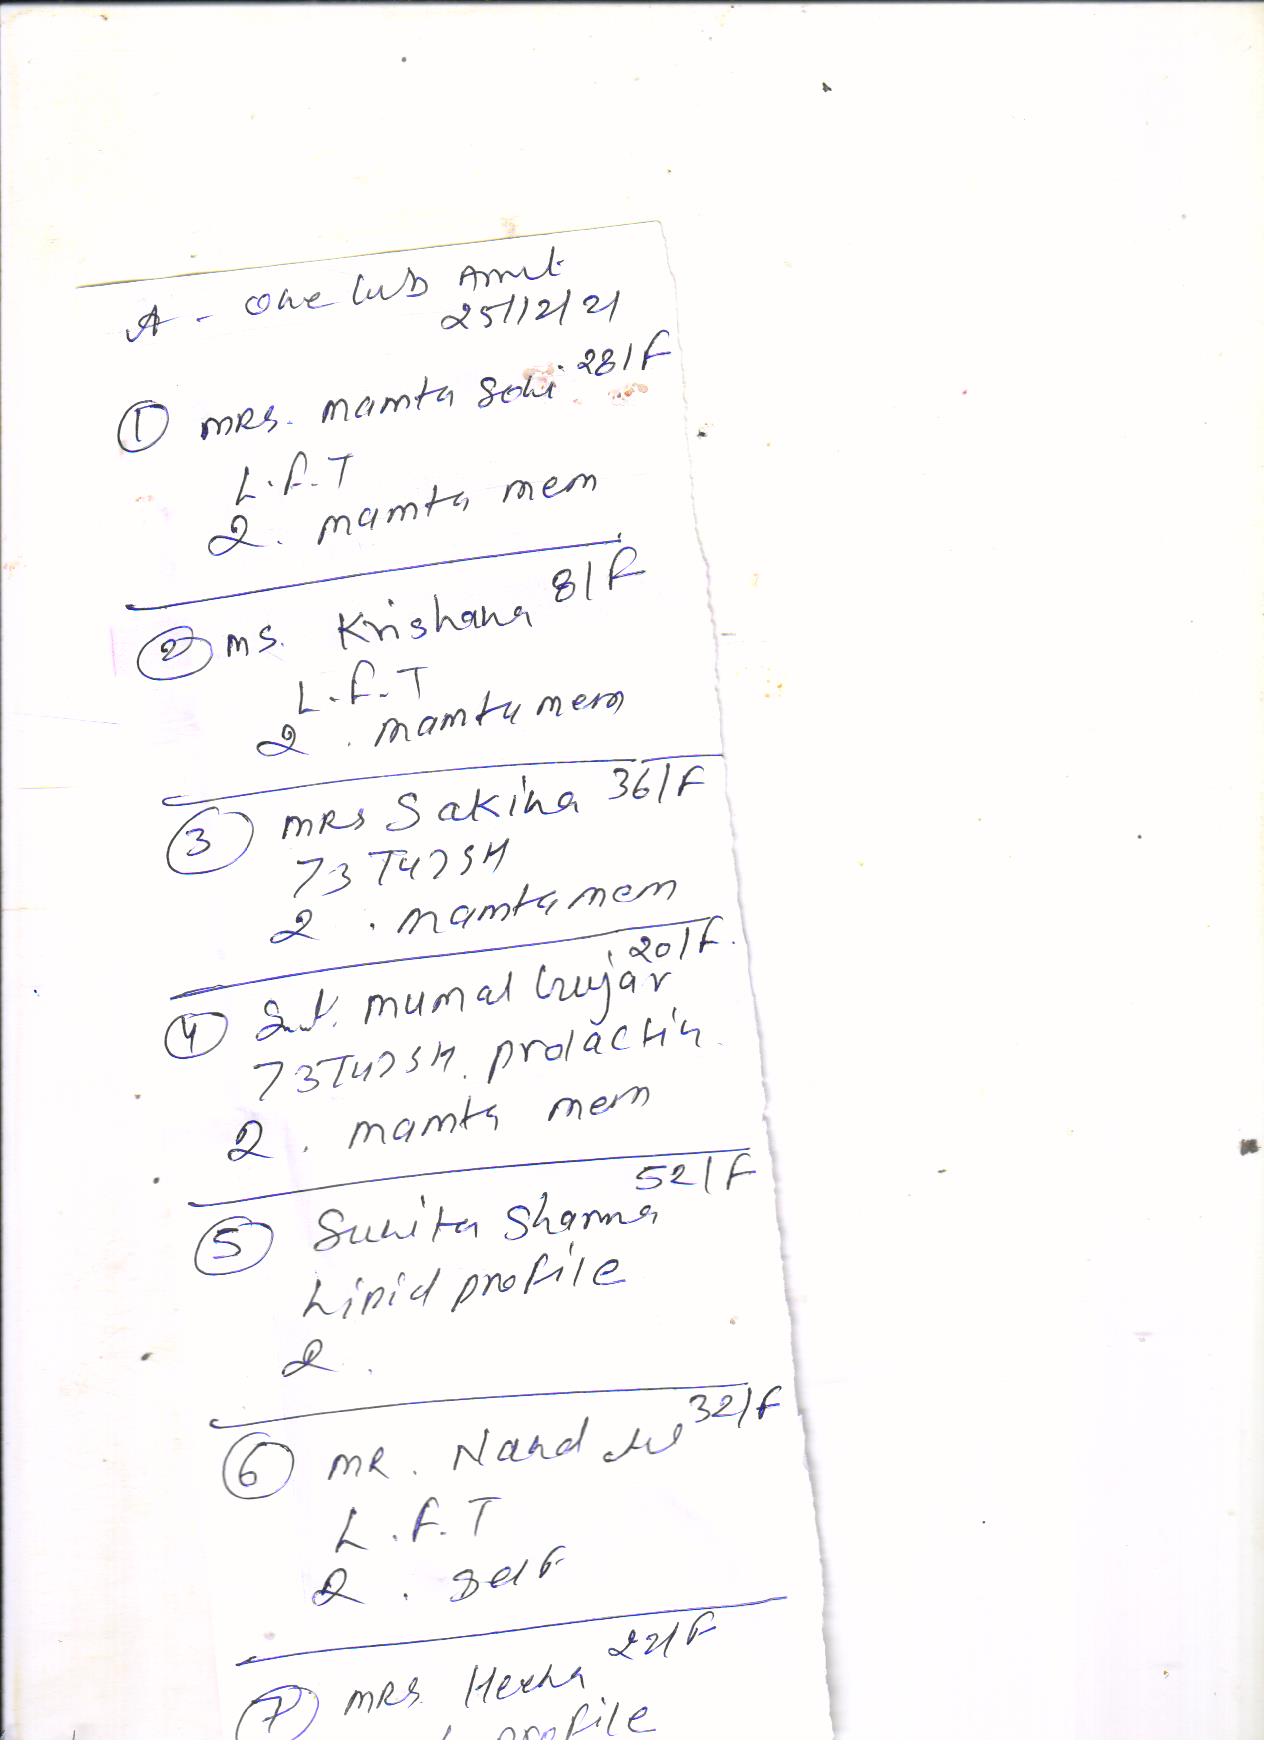 A - One Lab Amit
25/12/21
① MRS. Mamta Soni 28/F
L.F.T
2. mamta mem
② MS. Krishana 8/F
L.F.T
2. mamta mem
③ MRS Sakina 36/F
T3T4TSH
2. mamta mem
④ Smt. Mumal Gujar 20/F.
T3T4TSH. prolactin
2. mamta mem
⑤ Sunita Sharma 52/F
Lipid profile
2.
⑥ MR. Nand 32/F
L.F.T
2. self
⑦ MRS. 22/F
profile